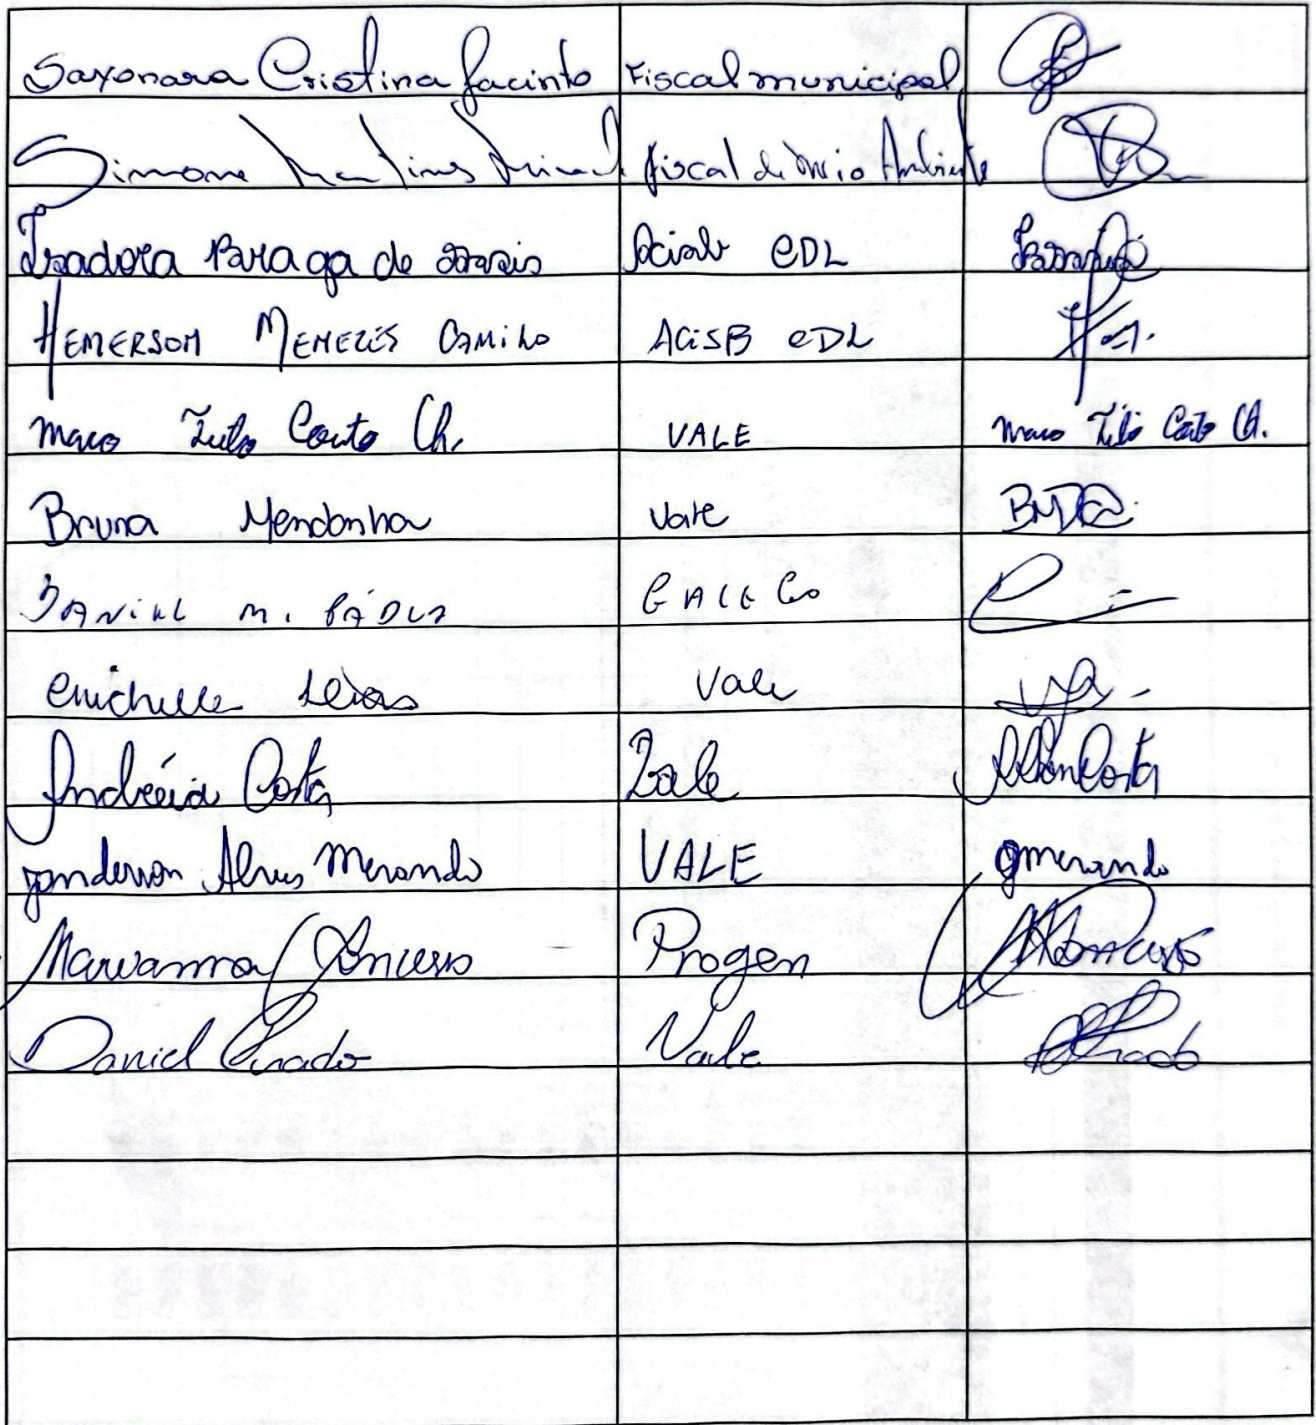 Sayonara Cristina Jacinto Fiscal municipal
Simone Martins fiscal de Meio Ambiente
Isadora Braga de Assis Aciab CDL
HEMERSOM MENEZES CAMILO ACiSB CDL
Marco Tulio Couto Ch. VALE Marco Tulio Couto Ch.
Bruna Mendanha Vale
DANIEL M. PÁDUA
Michelle Vale
Andréia Costa Vale
Janderson Alves Merando VALE Jmerando
Marianna Progen
Daniel Prado Vale